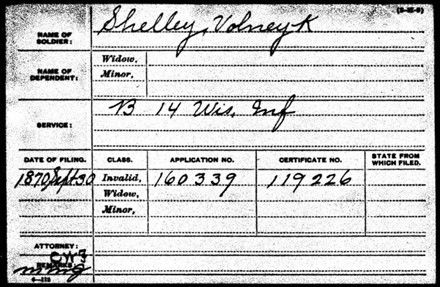 (3-25-5)
NAME OF SOLDIER: Shelley, Volney K
NAME OF DEPENDENT: Widow,
Minor,
SERVICE: B 14 Wis. Inf
DATE OF FILING. CLASS. APPLICATION NO. CERTIFICATE NO. STATE FROM WHICH FILED.
1870 Sept 30 Invalid, 160339 119226
Widow,
Minor,
ATTORNEY:
REMARKS: